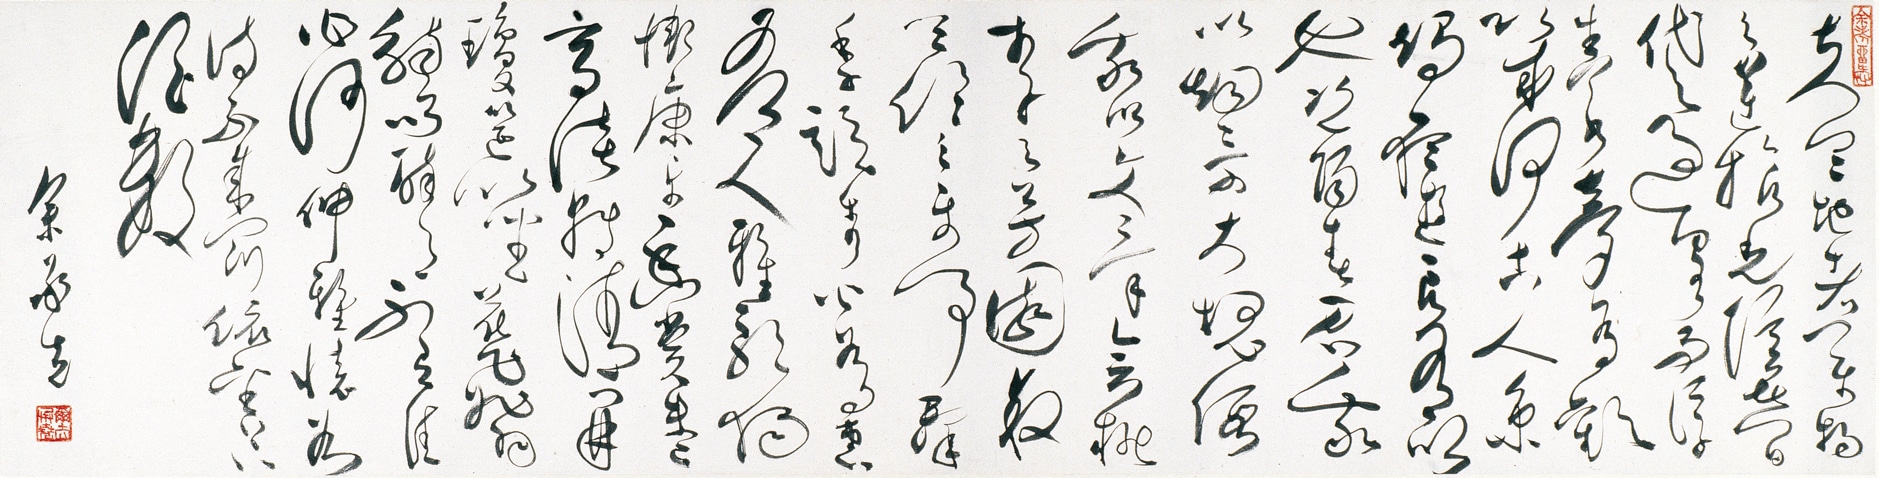 夫天地者萬物
之逆旅光陰者百
代之過客而浮
生若夢為歡
幾何古人秉
燭夜遊良有以
也況陽春召我
以煙景大塊假
我以文章會桃
李之芳園敘
天倫之樂事群
季俊秀皆為惠
連吾人詠歌獨
慚康樂幽賞未已
高談轉清開
瓊筵以坐花飛羽
觴而醉月不有佳
作何伸雅懷如
詩不成罰依金谷
酒數
余承堯